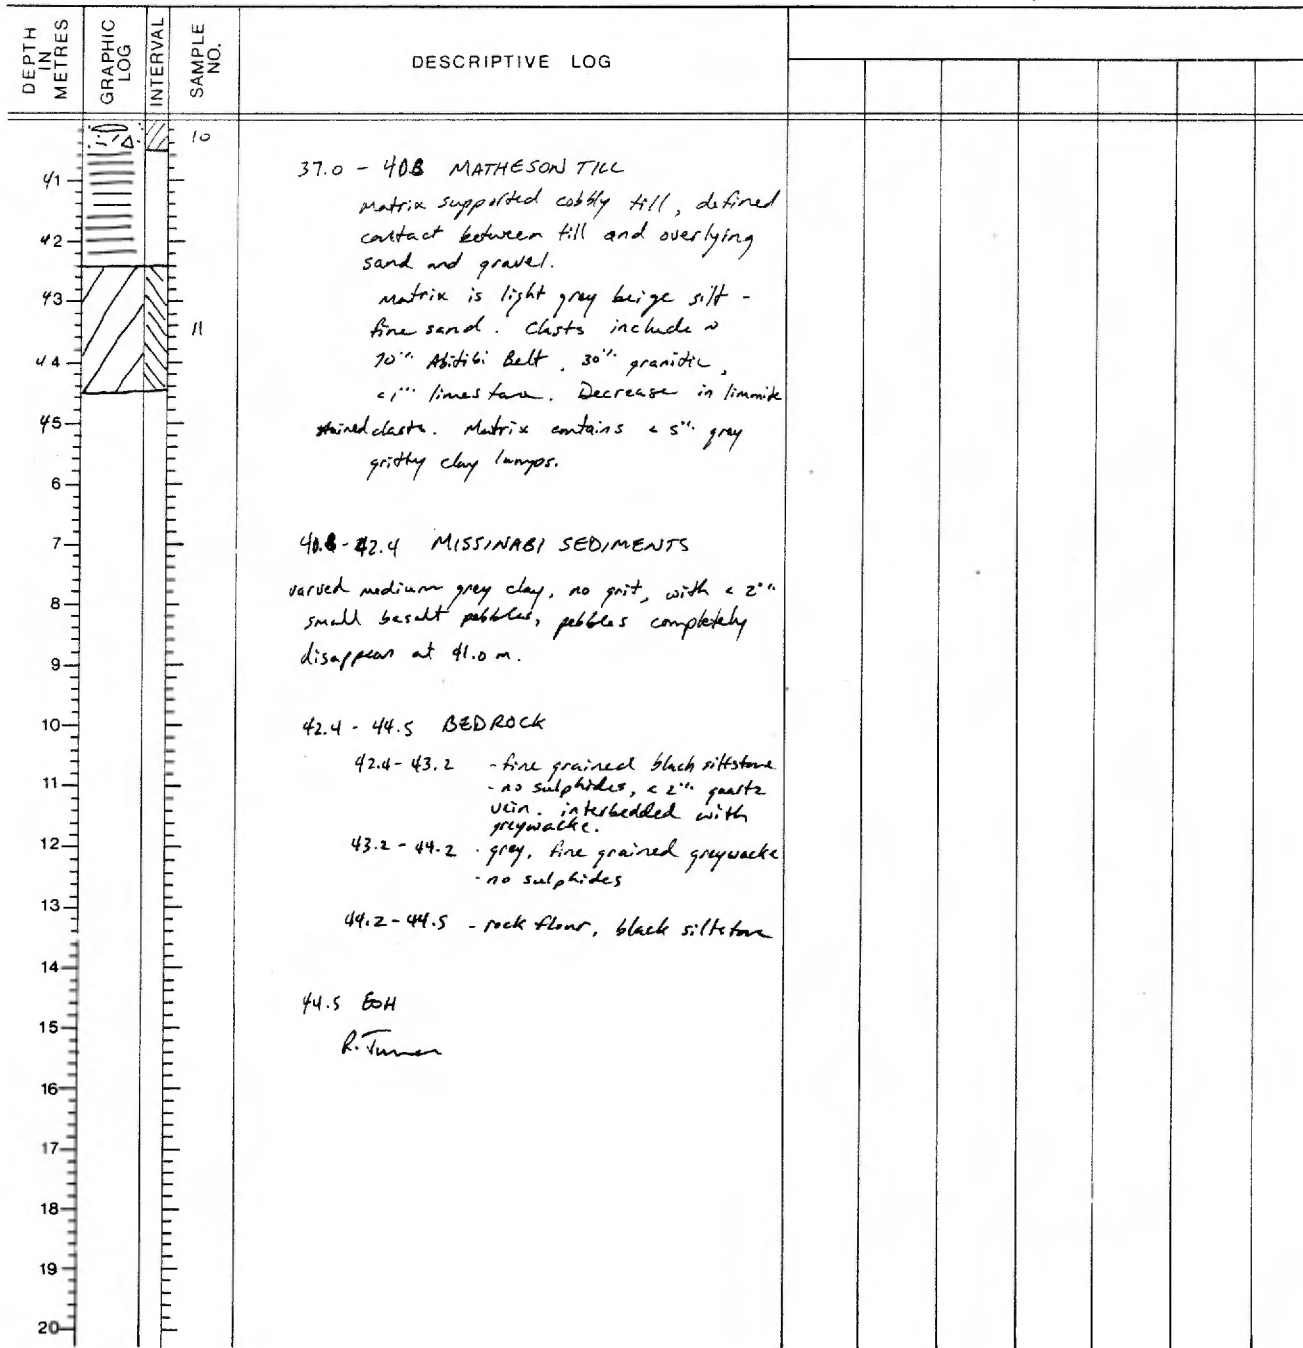 DEPTH IN METRES
GRAPHIC LOG
INTERVAL
SAMPLE NO.
DESCRIPTIVE LOG
10
37.0 - MATHESON TILL
41
Matrix supported cobbly till, defined
contact between till and overlying
42
sand and gravel.
43
Matrix is light grey beige silt -
fine sand. Clasts include ~
11
44
70% Abitibi Belt, 30% granitic,
<1% limestone. Decrease in limonite
45
stained clasts. Matrix contains < 5% grey
gritty clay lumps.
6
7
- 42.4 MISSINABI SEDIMENTS
varved medium grey clay, no grit, with < 2%
8
small basalt pebbles, pebbles completely
disappear at 41.0 m.
9
10
42.4 - 44.5 BEDROCK
42.4 - 43.2 - fine grained black siltstone
11
- no sulphides, < 2% quartz
vein. interbedded with
greywacke.
12
43.2 - 44.2 - grey, fine grained greywacke
- no sulphides
13
44.2 - 44.5 - rock flour, black siltstone
14
44.5 EOH
15
R. Turner
16
17
18
19
20